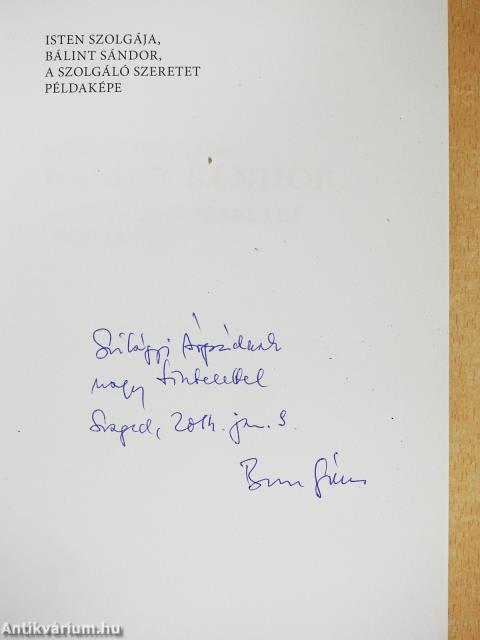 ISTEN SZOLGÁJA,
BÁLINT SÁNDOR,
A SZOLGÁLÓ SZERETET
PÉLDAKÉPE
Szilágyi Árpádnak
nagy tisztelettel
Szeged, 2014. jan. 9.
Antikvárium.hu